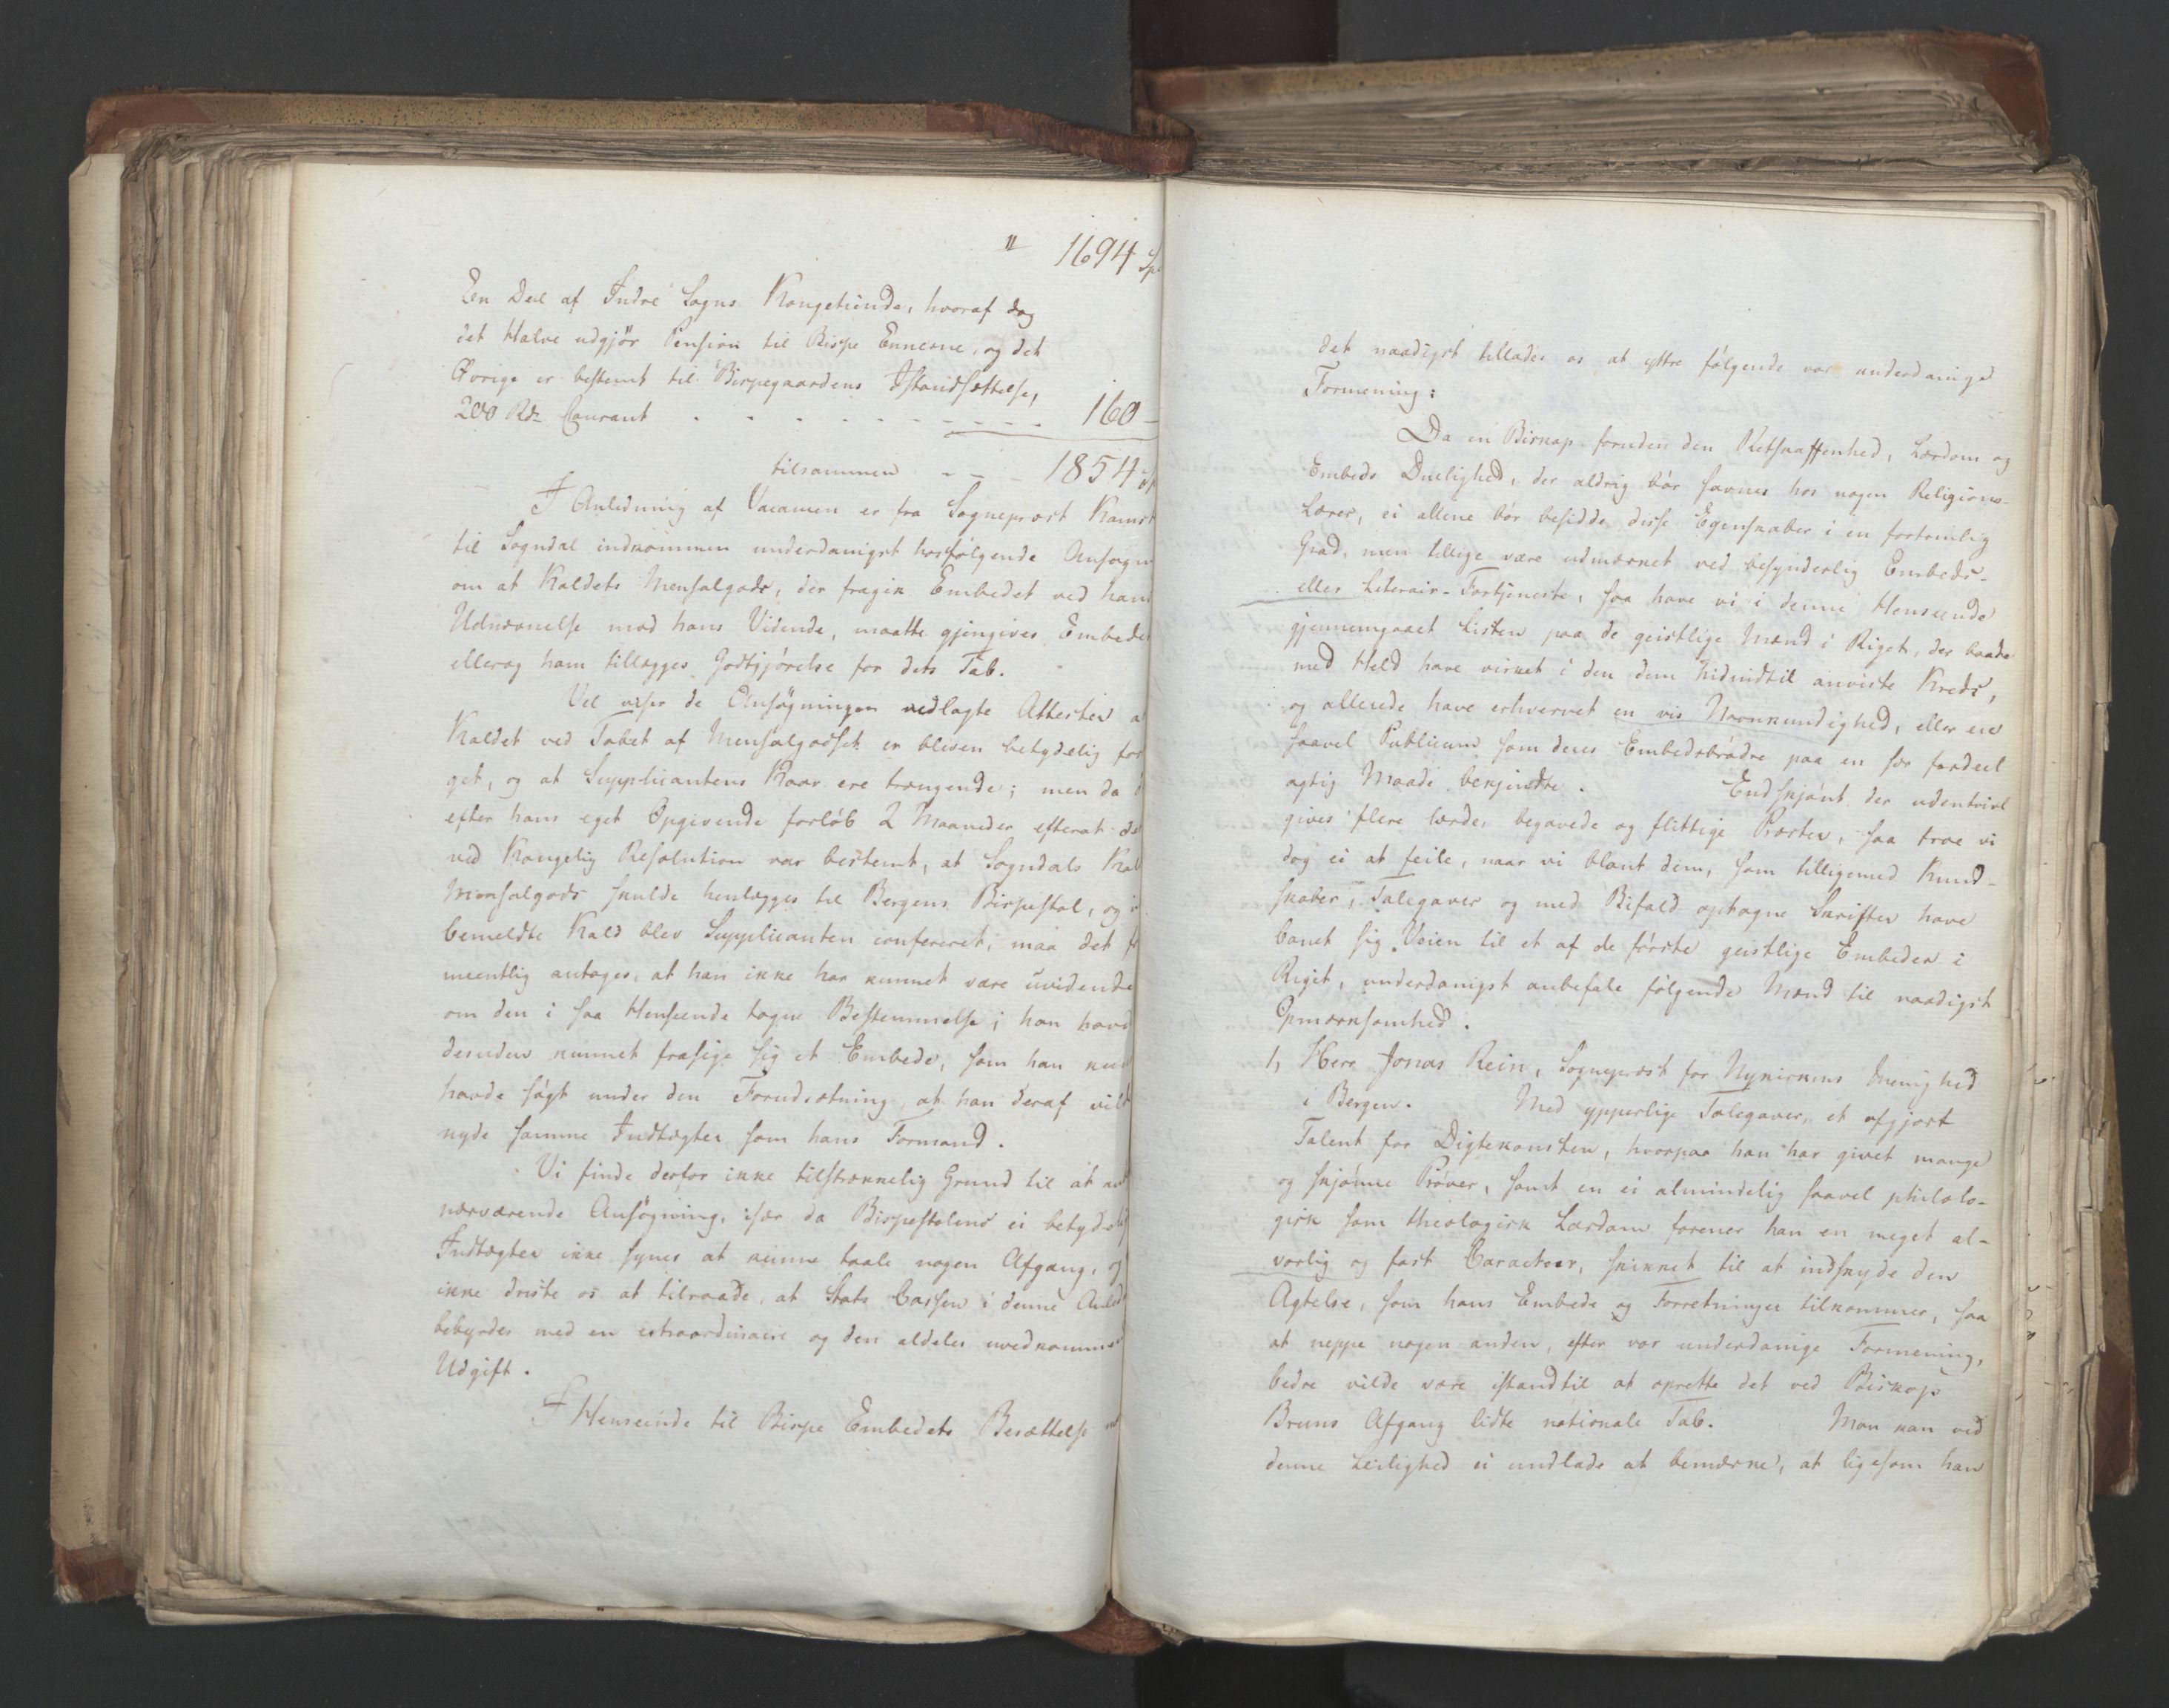 " 1694 Sp
En Deel af Indre Sogns Kongetiende, hvoraf dog
det Halve udgjør Pension til Bispe Enkerne, og det
Øvrige er bestemt til Bispegaardens Istandsættelse,
200 Rd Courant - - - - - - - - - - 160 -
tilsammen - - - 1854 Sp
I Anledning af Vacancen er fra Sogneprest
til Sogndal indkommen underdanigst hosfølgende Ansøgn
om at Kaldets Mensalgods, der fragik Embedet ved hans
Udnævnelse mod hans Vidende, maatte gjengives Embedet
ellerog ham tillægges Godtgjørelse for dets Tab.
Vel viser de Ansøgningen vedlagte Attester a
Kaldet ved Tabet af Mensalgodset er bleven betydelig for
get, og at Supplicantens Kaar ere trængende; men da
efter hans eget Opgivende forløb 2 Maaneder efterat de
ved Kongelig Resolution var bestemt, at Sogndals Kal
Mensalgods skulde henlægges til Bergens Bispestol, og i
bemeldte Kald blev Supplicanten confereret, maa det f
meentlig antages, at han ikke har kunnet være uvidende
om den i saa Henseende tagne Bestemmelse; han havd
desuden kunnet frasige sig et Embede, som han kun
havde søgt under den Forudsætning at han deraf vild
nyde samme Indtægter som hans Formand.
Vi finde derfor ikke tilstrækkelig Grund til at an
nærværende Ansøgning, især da Bispestolens ei betydelig
Indtægter ikke synes at kunne taale nogen Afgang, og
ikke driste os at tilraade, at Stats Cassen i denne Anled
bebyrdes med en extraordinaire og den aldeles uvedkommen
Udgift.
I Henseende til Bispe Embedets Besættelse
det naadigst tillades os at yttre følgende vor underdanige
Formening:
Da en Biskop foruden den Retskaffenhed, Lærdom og
Embeds Duelighed, der aldrig bør savnes hos nogen Religions-
Lærer, ei allene bør besidde disse Egenskaber i en fortrinlig
Grad, men tillige være udmærket ved besynderlig Embeds-
eller Literair-Fortjeneste, saa have vi i denne Henseende
gjennemgaaet Listen paa de geistlige Mænd i Riget, der baade
med Held have virket i den dem hidindtil anviste Kreds,
og allerede have erhvervet en vis Navnkundighed, eller ere
saavel Publicum som deres Embedsbrødre paa en for fordeel
agtig Maade bekjendte. Endskjønt der udentvivl
gives flere lærde, begavede og flittige Præster, saa troe vi
dog ei at feile, naar vi blant dem, som tilligemed Kund-
skaber, Talegaver og med Bifald optagne Skrifter have
banet sig Veien til et af de første geistlige Embeder i
Riget, underdanigst anbefale følgende Mænd til naadigst
Opmærksomhed.
1, Herr Jonas Rein, Sogneprest for Nykirkens Menighed
i Bergen. Med ypperlige Talegaver, et afgjort
Talent for Digtekonsten, hvorpaa han har givet mange
og skjønne Prøver, samt en ei almindelig saavel philolo-
gisk som theologisk Lærdom forener han en meget al-
vorlig og fast Caracteer, skikket til at indskyde den
Agtelse, som hans Embede og Forretninger tilkommer, saa
at neppe nogen anden, efter vor underdanige Formening,
bedre vilde være istandtil at oprette det ved Biskop
Bruns Afgang lidte nationale Tab. Man kan ved
denne Leilighed ei undlade at bemærke, at ligesom han